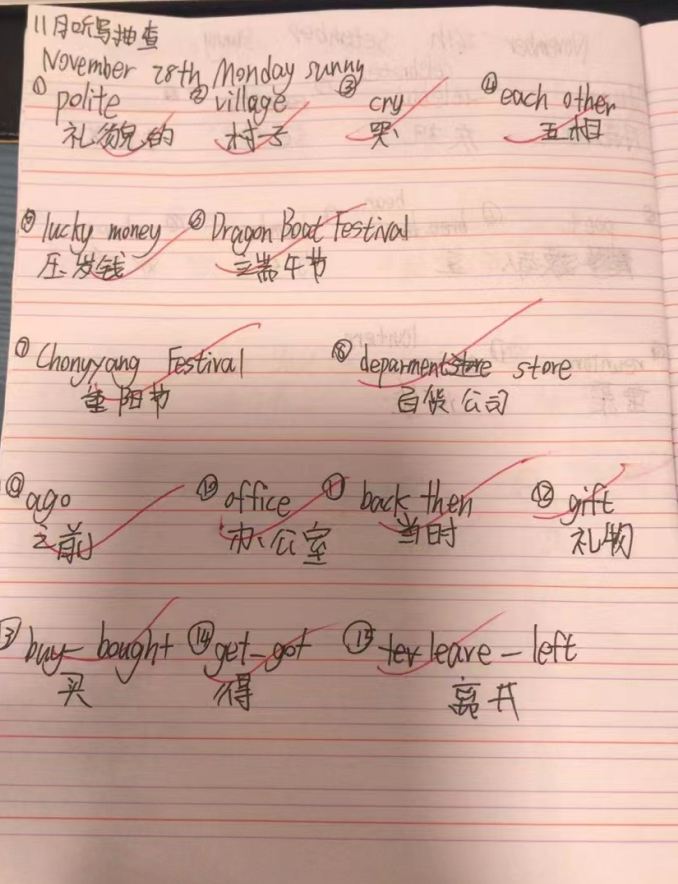 11月听写抽查
November 28th Monday sunny
① polite ② village ③ cry ④ each other
礼貌的 村子 哭 互相
⑤ lucky money ⑥ Dragon Boat Festival
压岁钱 端午节
⑦ Chongyang Festival ⑧ deparment store
重阳节 百货公司
⑨ ago ⑩ office ⑪ back then ⑫ gift
之前 办公室 当时 礼物
⑬ buy - bought ⑭ get - got ⑮ leave - left
买 得 离开